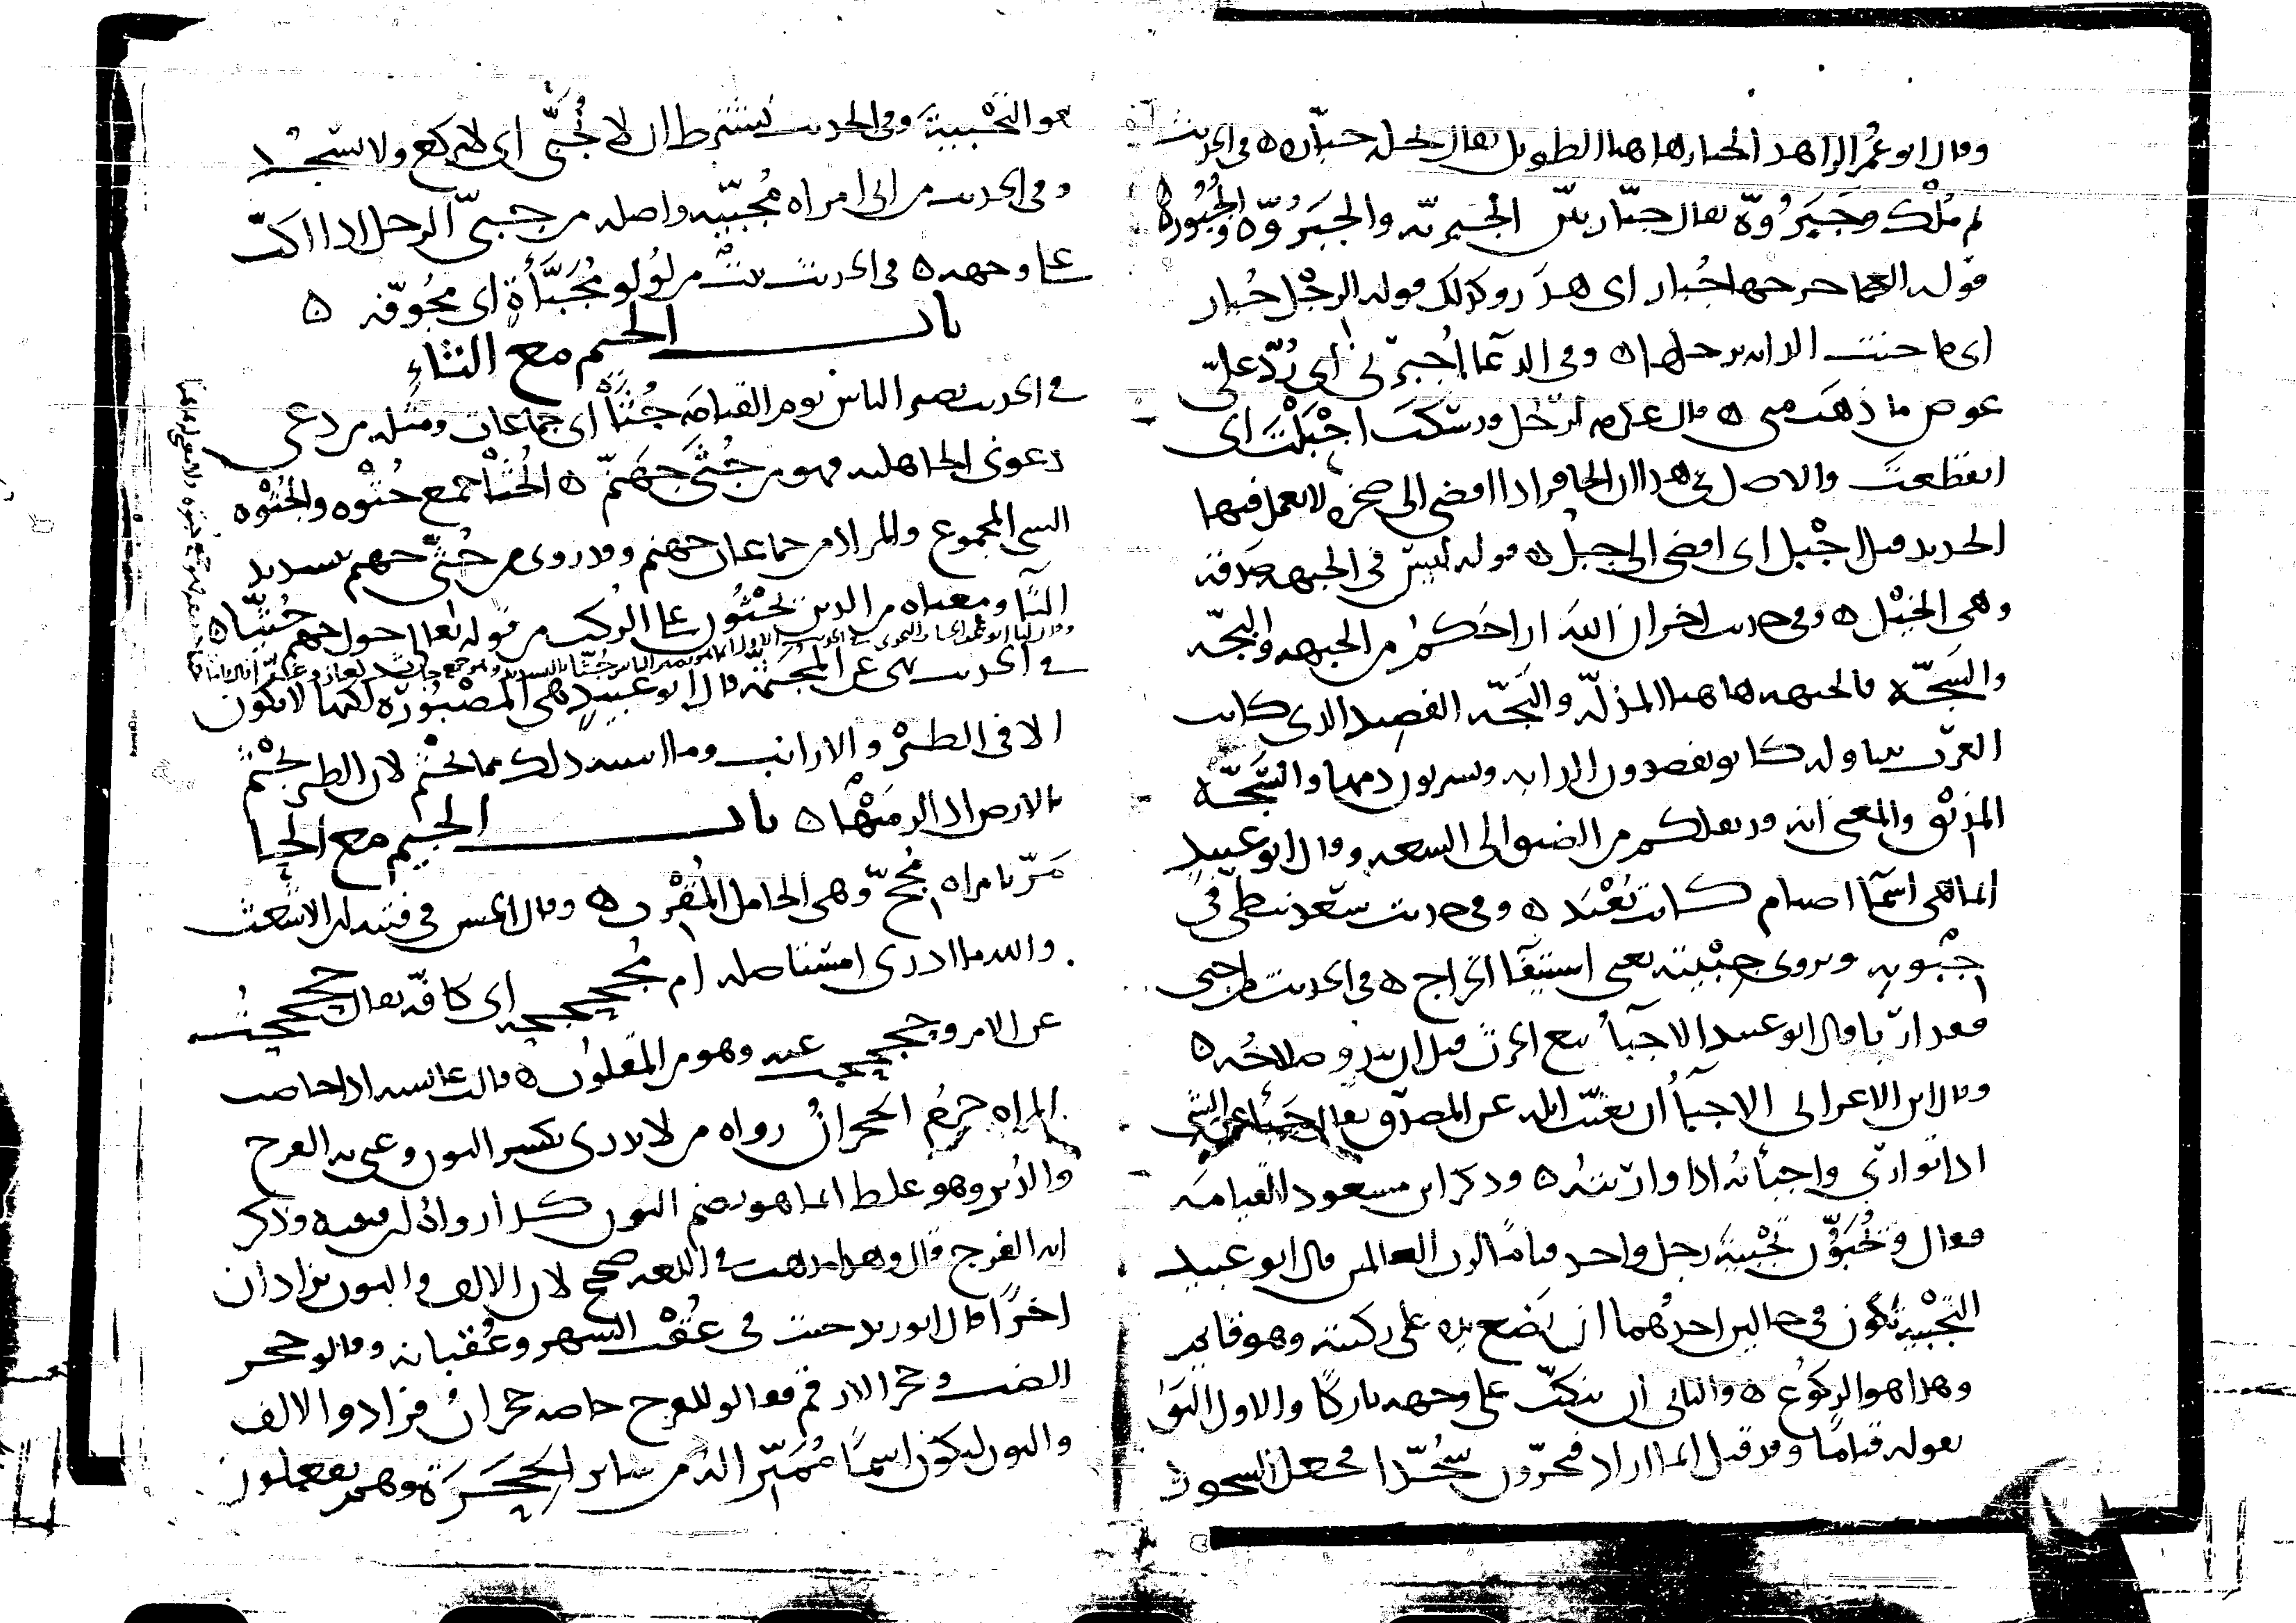 وقال ابو عُمر الزاهد الجبار هاهنا الطويل يقال نخله جبّاره ٥ في الحديث
ثم مُلْك وجَبَرُوّة يقال جبّار بيّن الجبريّه والجَبَرُوّه والجُبُوره
قوله العجما جرحها جُبار اي هدَر وكذلك قوله الرِجْل جُبار
اي ما جنت الدابه برجلها ٥ وفي الدعآ اُجبُرني اي رُدّ عليّ
عوض ما ذهَب مني ٥ قال عكرمه لرجُل ورتبتكَ اجْبَلْتَ اي
انقطعت والاصل في هذا ان الحافر اذا افضى الى صخره لا يعمل فيها
الحديد قيل اجْبل اي افضى الى جبل ٥ قوله ليس في الجبهه صَدقه
وهي الخيْل ٥ وفي حديث اخر ان الله اراحكم من الجبهه والبجّه
والسَجّه فالجبهه هاهنا المذلّه والبَجّه الفصيد الذي كانت
العرَب تتناوله كانوا يفصدون الدابه ويشربون دمها والسَّجّه
المذْق والمعنى انه قد نقلكم من الضيق الى السعه وقال ابو عبيد
انما هي اسمآ اصنام كانت تُعْبَد ٥ وفي حديث سَعد نبطي في
جِبْوته ويروى جِبْيته يعني استيفآ الخراج ٥ في الحديث من اجبى
فقد ارْبا قال ابو عبيد الاجبآ بيع الحرث قبل ان يبدو صلاحُه ٥
وقال ابن الاعرابي الاجبآ أن يغيّب ابله عن المصدّق يقال جَبَأ عن الشي
اذا توارَى واجبأته اذا وارَيتُه ٥ وذكر ابن مسعود القيامه
فقال ويُجَبّون تَجْبِيَة رجل واحد قيامًا لرب العالمين قال ابو عبيد
التجْبِيَه تكون في حالين احدُهما ان يَضع يده على ركبتيه وهو قايم
وهذا هو الركوُع ٥ والثاني ان ينكبّ على وجهه باركًا والاول
بقوله قيامًا وقد قيل انما اراد فيخرّون سُجّدا فجعل السجود
هو التَجْبِيَة وفي الحديث نشترط ان لا نُجَبّي اي لا نركع ولا نسجُد
وفي الحديث من اتى امراه مُجَبِّيَه واصله من جبّى الرجل اذا اكبّ
على وجهه ٥ في الحديث بيت من لُولُو مُجَبَّأَةٍ اي مُجوّفه ٥
باب الجيم مع الثاء
في الحديث يصير الناس يوم القيامة جُثًا اي جماعات ومثله من دعى
دعوى الجاهليه فهو من جُثَى جهَنّم ٥ الجُثَا جمع جُثْوه والجُثْوه
الشي المجموع والمراد من جماعات جهنم وقد روى من جُثِّي جهنم بتشديد
الثآ ومعناه من الذين يجْثُون على الرُكب من قوله تعالى حول جهنم جُثيّا ٥
في الحديث نهى عن المجَثّمه قال ابو عبيد هي المصْبُورَه لكنها لا تكون
الا في الطيْر والارانب وما اشبه ذلك مما يجثِم لان الطير تَجْثِمُ
بالارض اذا لزمَتْها ٥ باب الجيم مع الحا
مَرّ بامراه مُجِحّ وهي الحامل المُقْرِب ٥ وقال الحسن في فتنه ابن الاشعث
والله ما ادري امستاصله ام مُجحجحه اي كافّه يقال جحجحتُ
عن الامر وحجحجت عنه وهو من المقلوُب ٥ قالت عايشه اذا حاضت
المراه حرُمَ الجحرانُ رواه من لا يدري بكسر النون وعنى به الفرج
والدُبر وهو غلط انما هو بضم النون كذا رواه ابن قتيبه وذكر
انه الفرج قال وهذا مذهب في اللغه صحيح لان الالف والنون تزادان
اخرًا قال ابو زيد جيت في عُقْب الشهر وعُقبانه وقالو جحر
الضب وجحر الارقم فقالو للفرج خاصه جحرانُ فزادوا الالف
والنون ليكون اسمًا مُمَيَّزًا له من ساير الجِحَرَة وهم يفعلون